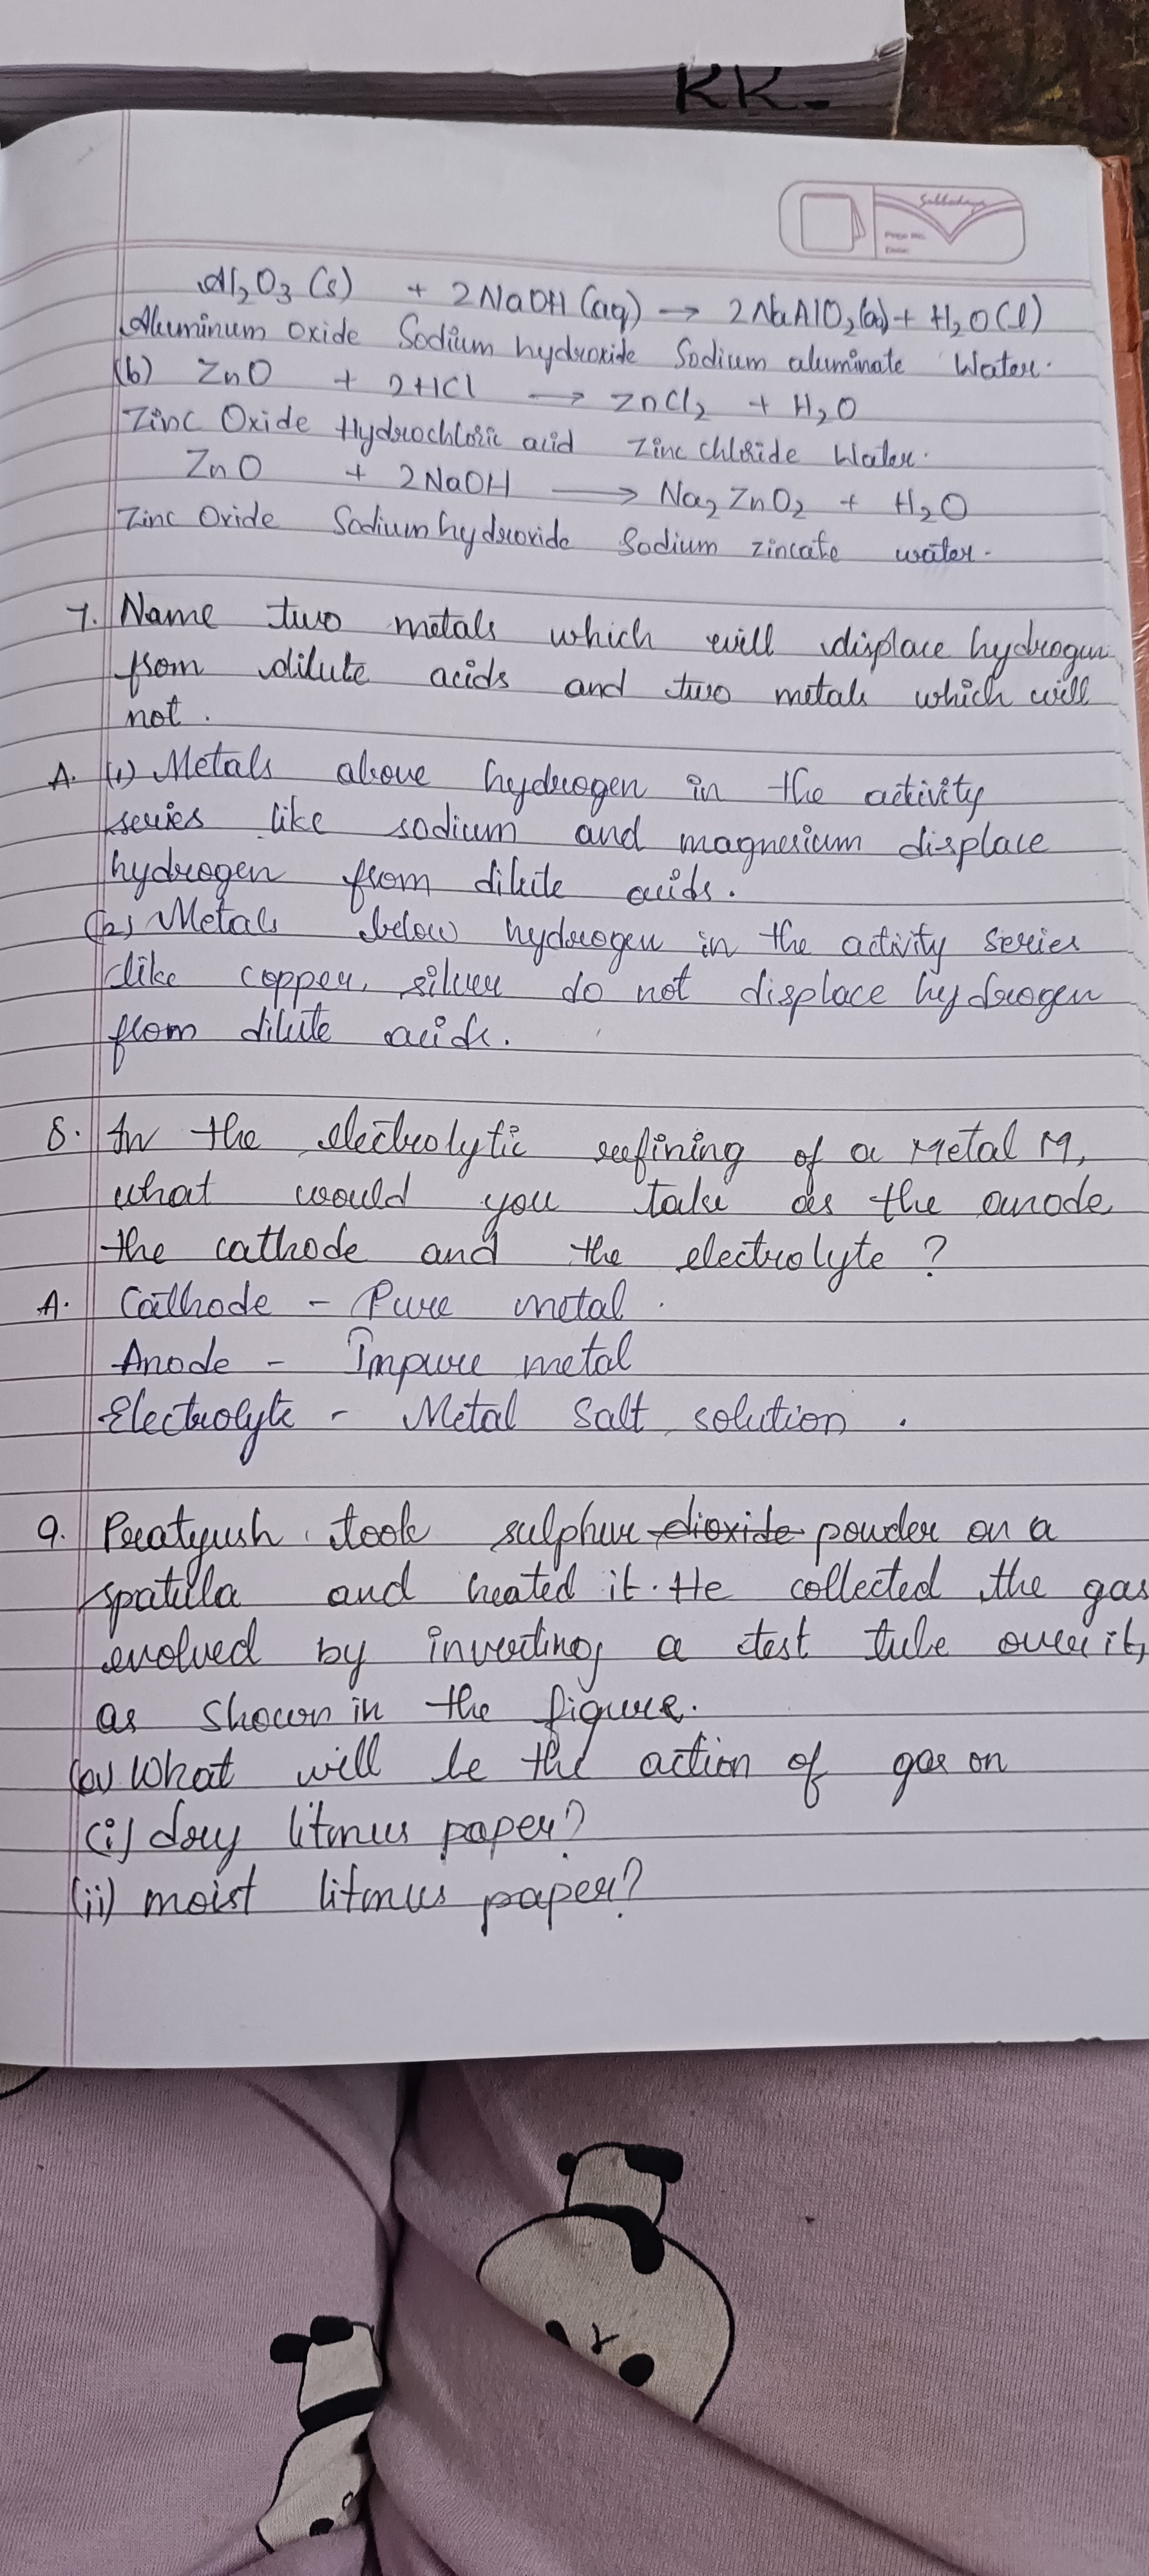 KK-
Al₂O₃(s) + 2NaOH(aq) → 2NaAlO₂(a) + H₂O(l)
Aluminum oxide Sodium hydroxide Sodium aluminate Water.
(b) ZnO + 2HCl → ZnCl₂ + H₂O
Zinc Oxide Hydrochloric acid Zinc chloride Water.
ZnO + 2NaOH → Na₂ZnO₂ + H₂O
Zinc Oxide Sodium hydroxide Sodium zincate water.
7. Name two metals which will displace hydrogen
from dilute acids and two metals which will
not.
A. (1) Metals above hydrogen in the activity
series like sodium and magnesium displace
hydrogen from dilute acids.
(2) Metals below hydrogen in the activity series
like copper, silver do not displace hydrogen
from dilute acids.
8. In the electrolytic refining of a Metal M,
what would you take as the anode,
the cathode and the electrolyte?
A. Cathode - Pure metal.
Anode - Impure metal
Electrolyte - Metal Salt solution.
9. Pratyush took sulphur dioxide powder on a
spatula and heated it. He collected the gas
evolved by inverting a test tube over it,
as shown in the figure.
(a) What will be the action of gas on
(i) dry litmus paper?
(ii) moist litmus paper?